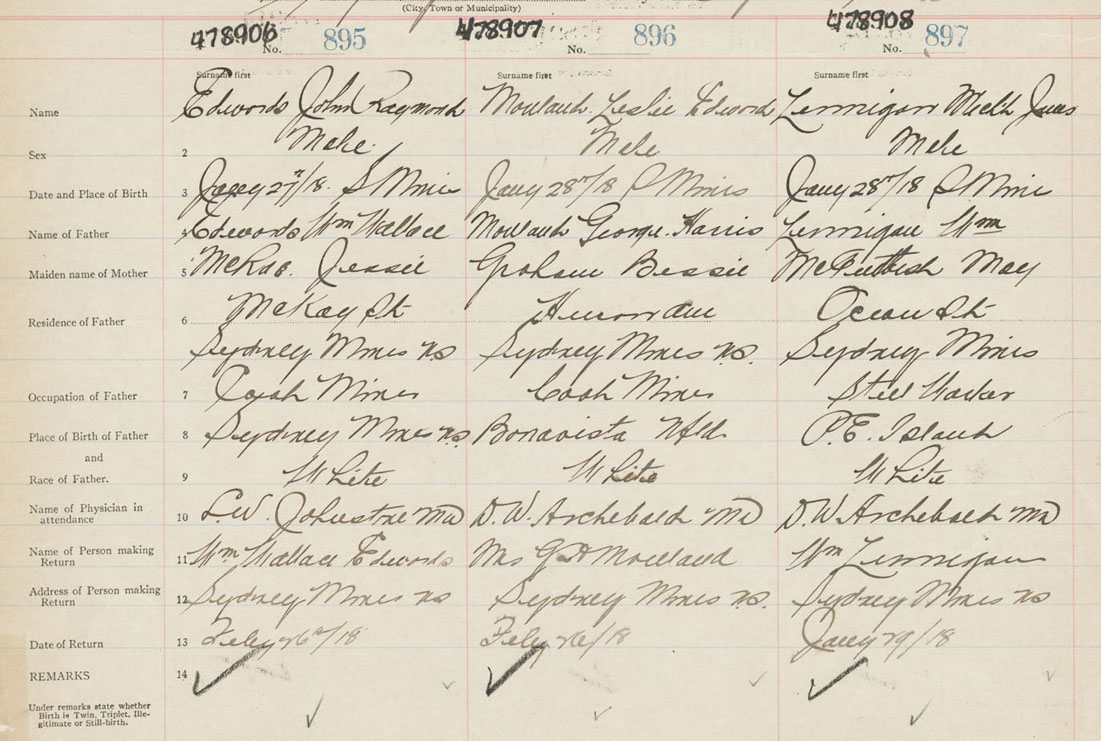 (City, Town or Municipality)
478906 No. 895 478907 No. 896 478908 No. 897
Surname first Surname first Surname first
Name Edwards John Raymond Mouland Leslie Edward Lannigan Jas
Sex 2 Male Male Male
Date and Place of Birth 3 Jany 27th/18. S Mines Jany 28th/18 S Mines Jany 28th/18 S Mines
Name of Father 4 Edwards Wm Wallace Mouland George Harris Lannigan Wm
Maiden name of Mother 5 McRae Jessie Graham Bessie May
Residence of Father 6 McKay St Huron Ave Ocean St
Sydney Mines NS Sydney Mines NS. Sydney Mines
Occupation of Father 7 Coal Miner Coal Miner Steel Worker
Place of Birth of Father 8 Sydney Mines NS Bonavista Nfld P.E. Island
and
Race of Father. 9 White White White
Name of Physician in
attendance 10 L.W. Johnstone MD D.W. Archibald MD D.W. Archibald MD
Name of Person making
Return 11 Wm Wallace Edwards Mrs G H Mouland Wm Lannigan
Address of Person making
Return 12 Sydney Mines NS Sydney Mines NS. Sydney Mines NS
Date of Return 13 Feby 26th/18 Feby 26/18 Jany 29/18
REMARKS 14
Under remarks state whether
Birth is Twin, Triplet, Ille-
gitimate or Still-birth.